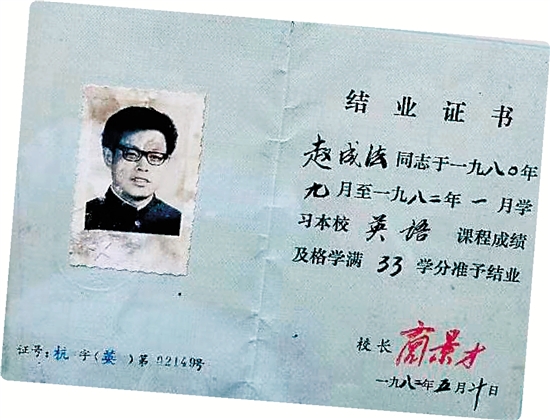 结业证书
赵成法同志于一九八〇年
九月至一九八二年一月学
习本校 英语 课程成绩
及格学满 33 学分准予结业
校长 商景才
一九八二年五月廿日
证号：杭字（英）第02149号